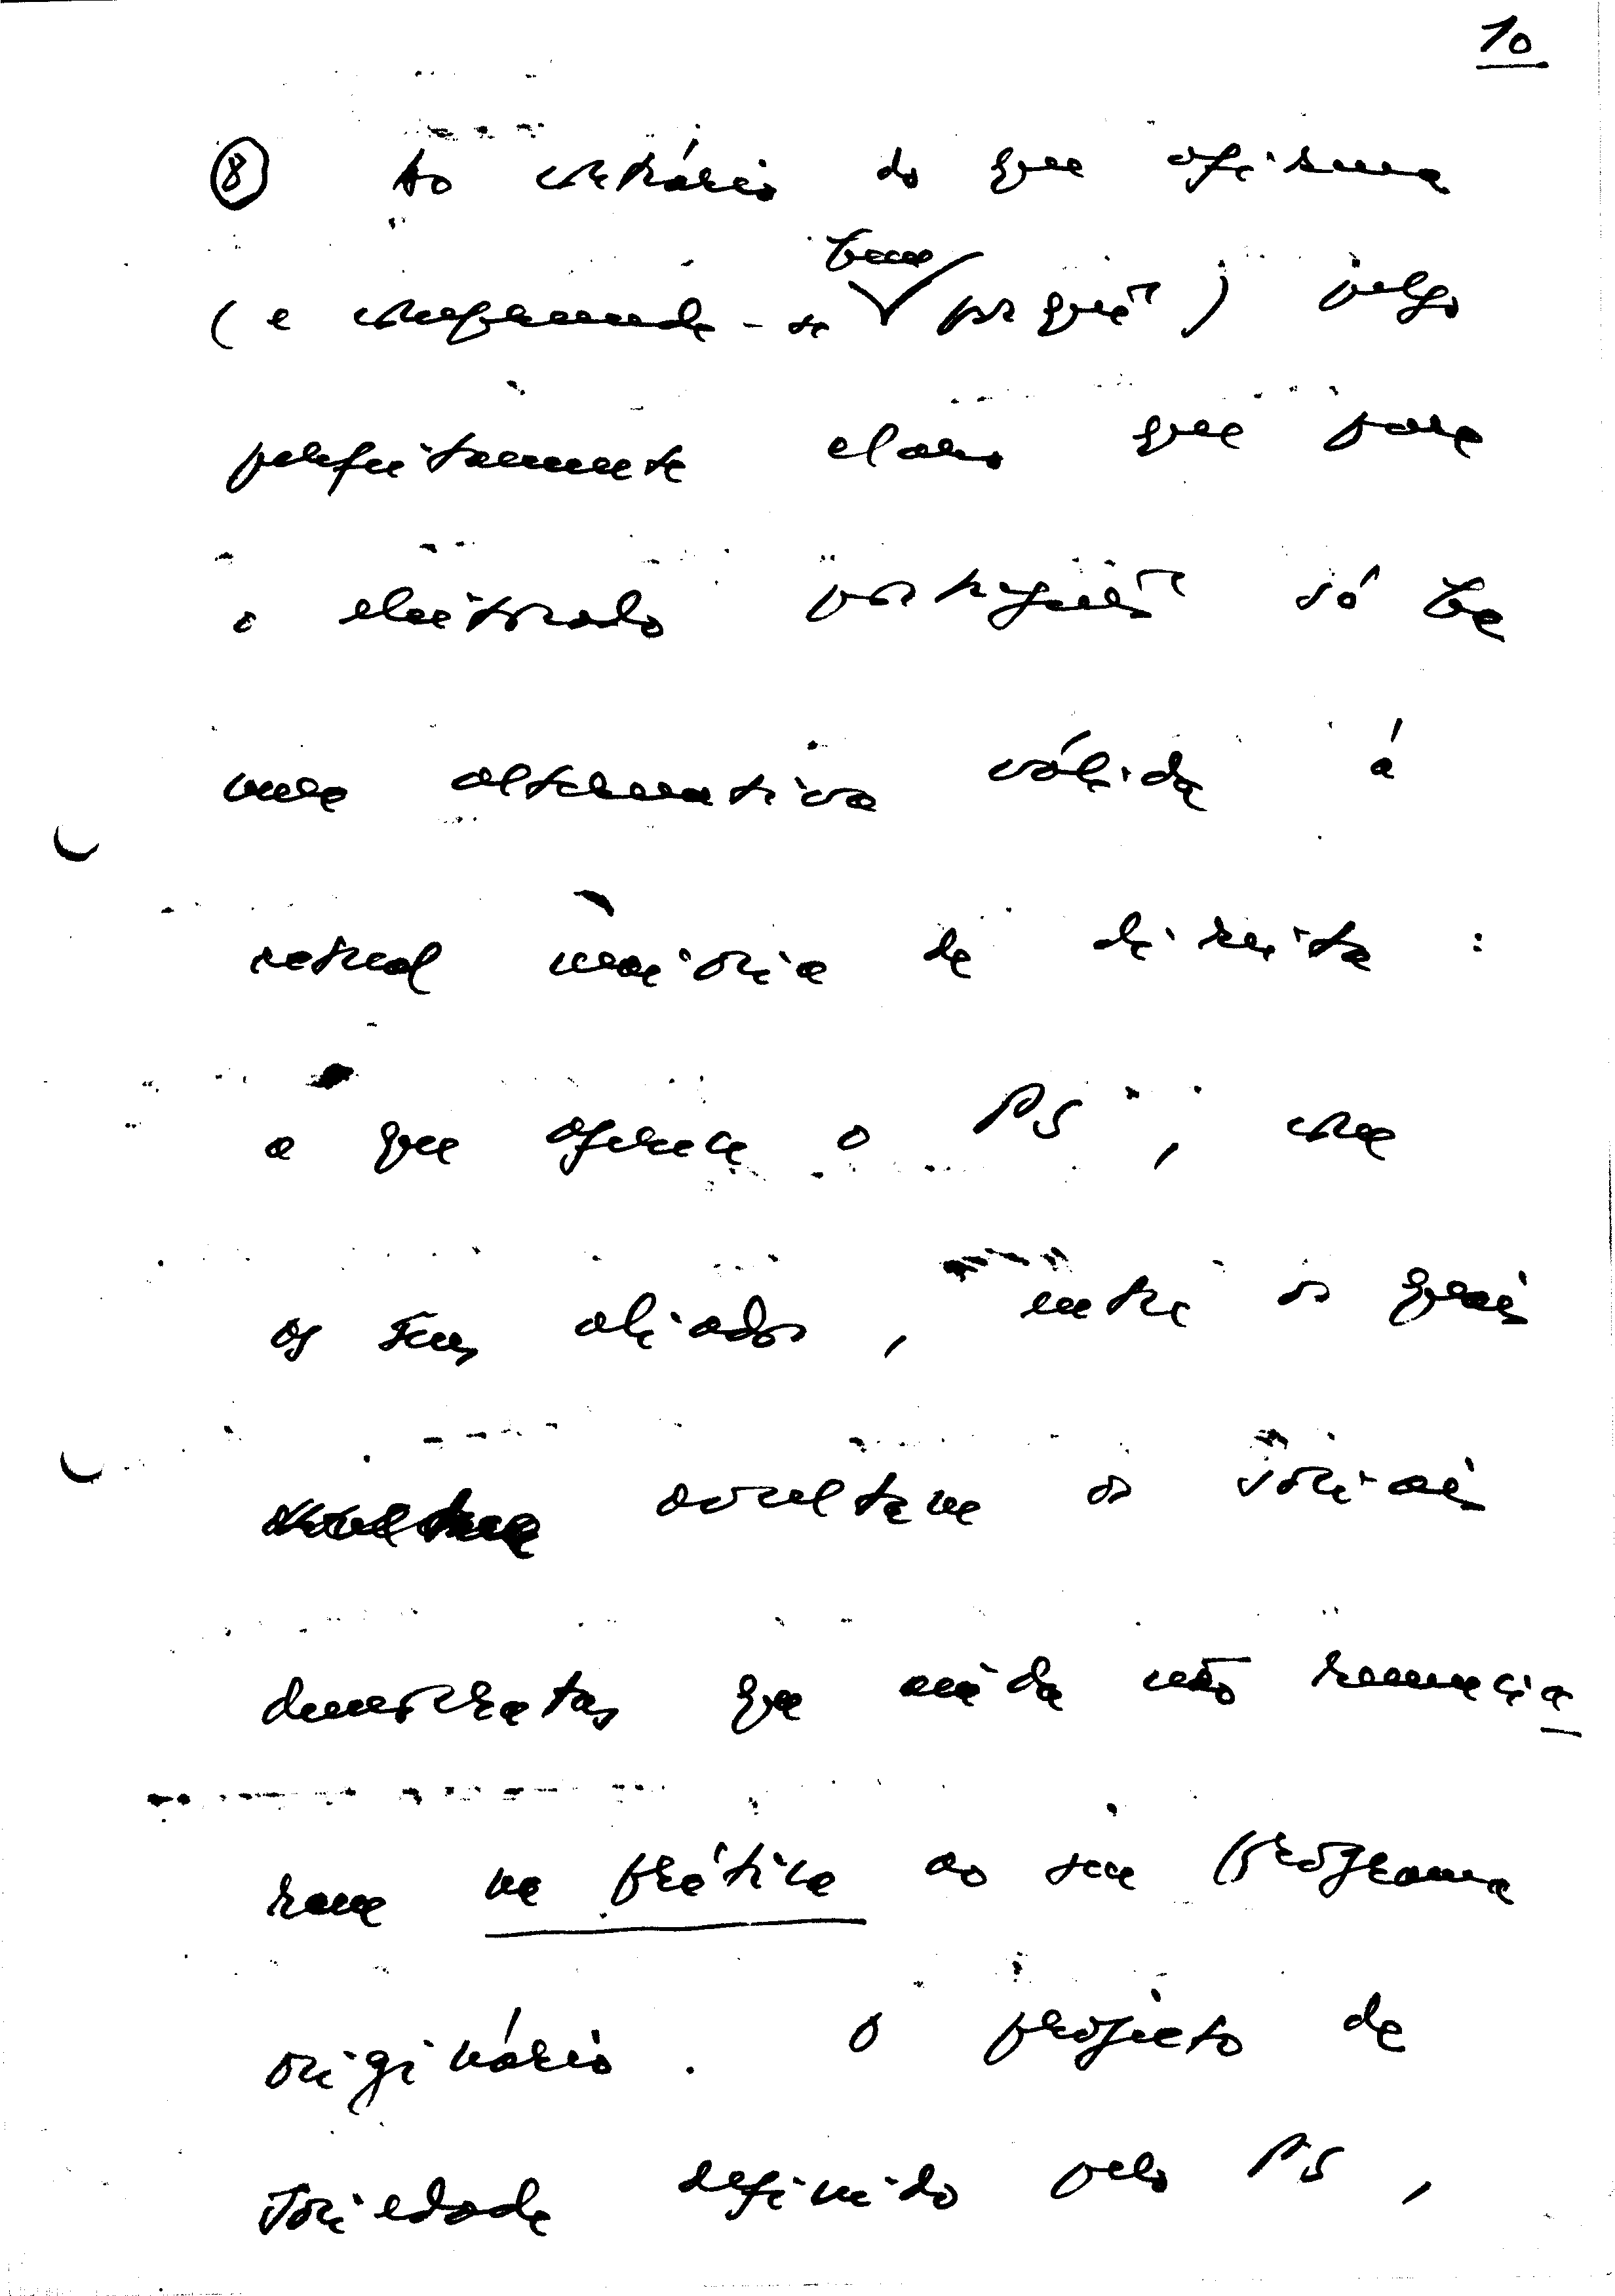 10
⑧ Ao contrário do que afirma
bem
(e compreende-se porquê) julgo
perfeitamente claro que para
o eleitorado português só há
uma alternativa válida à
actual maioria de direita :
a que oferece o PS, com
os seus aliados, entre os quais
avultam os sociais
democratas que ainda não renuncia
ram na prática ao seu programa
originário. O projecto de
sociedade definido pelo PS,